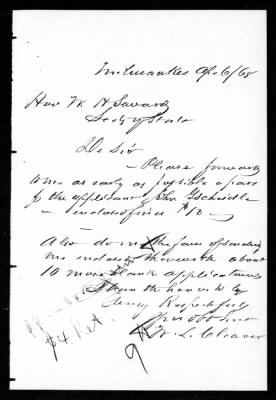 Milwaukee Ap 6/68
Hon W. H. Seward
Sec'y of State
De Sir
Please forward
to me as early as possible a pass
for the applicant John
enclosed find $10
Also do me the favor of sending
me enclosed therewith about
10 more blank applications
I have the honor to be
Very Respectfully
Your obt Servt
W. L. Cleaver
$4 Ret